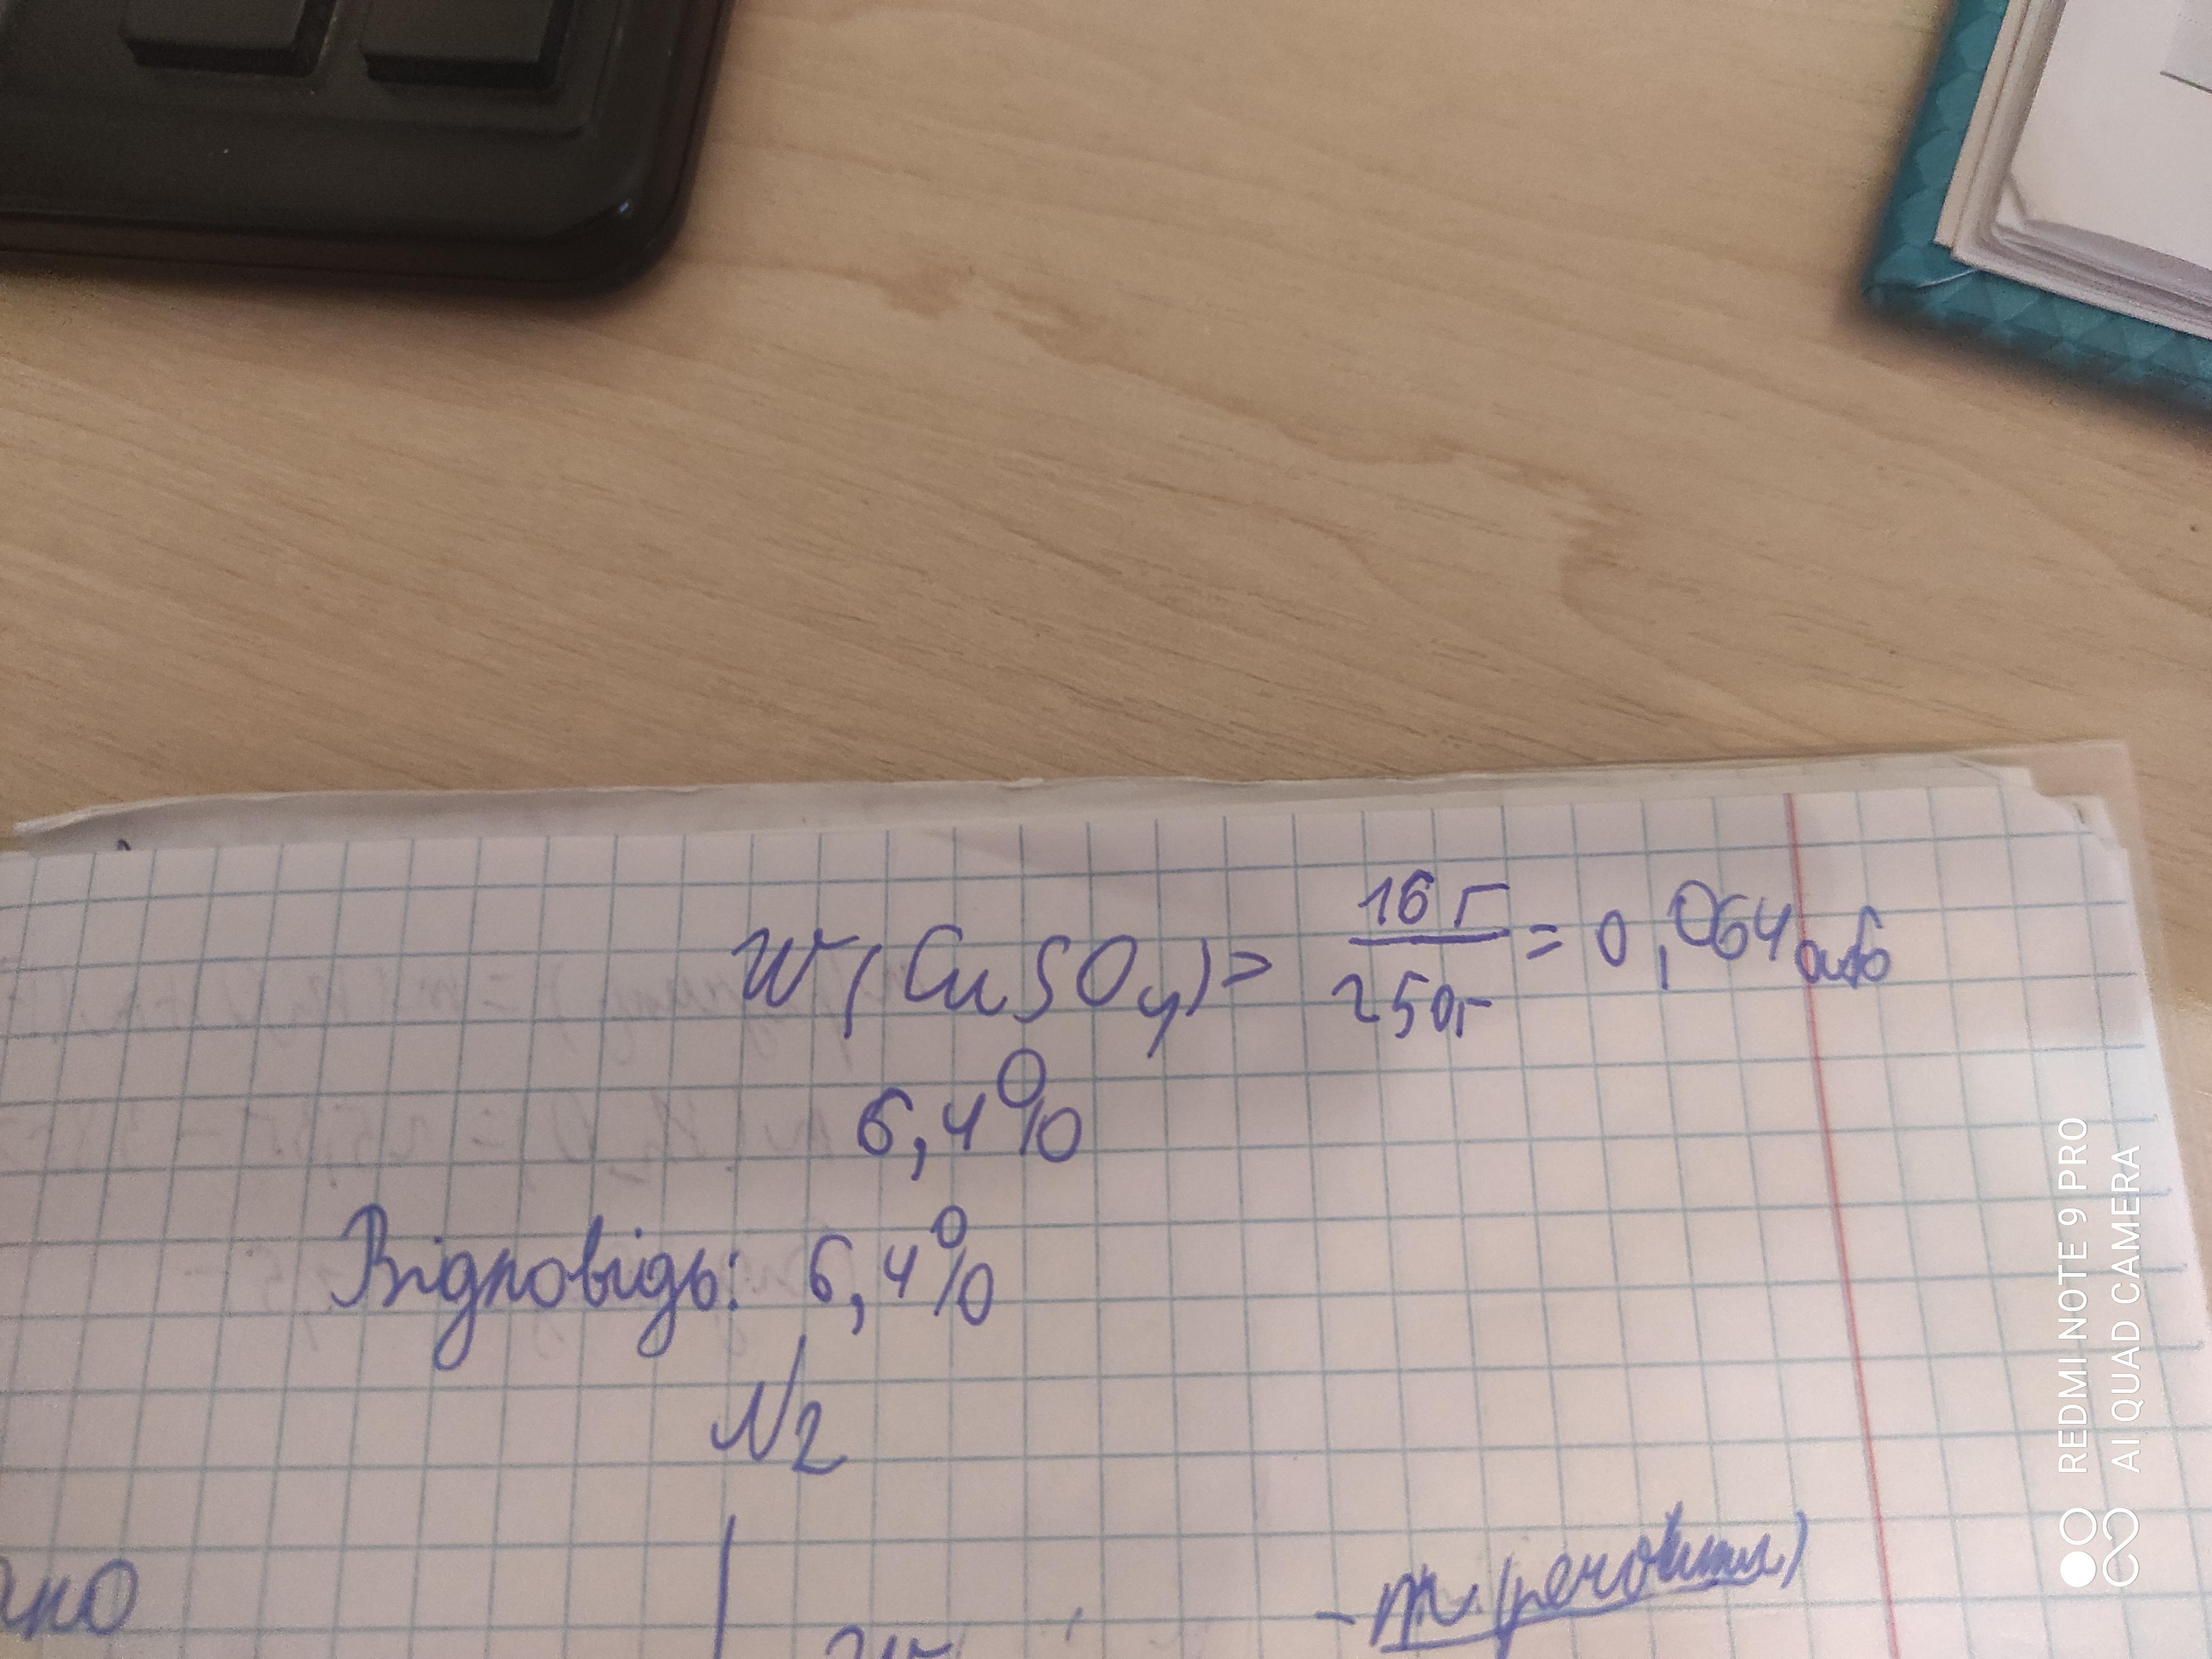 W(CuSO4) = 16 г / 250г = 0,064 або
6,4%
Відповідь: 6,4%
N2
ано
m(речовини)
REDMI NOTE 9 PRO
AI QUAD CAMERA